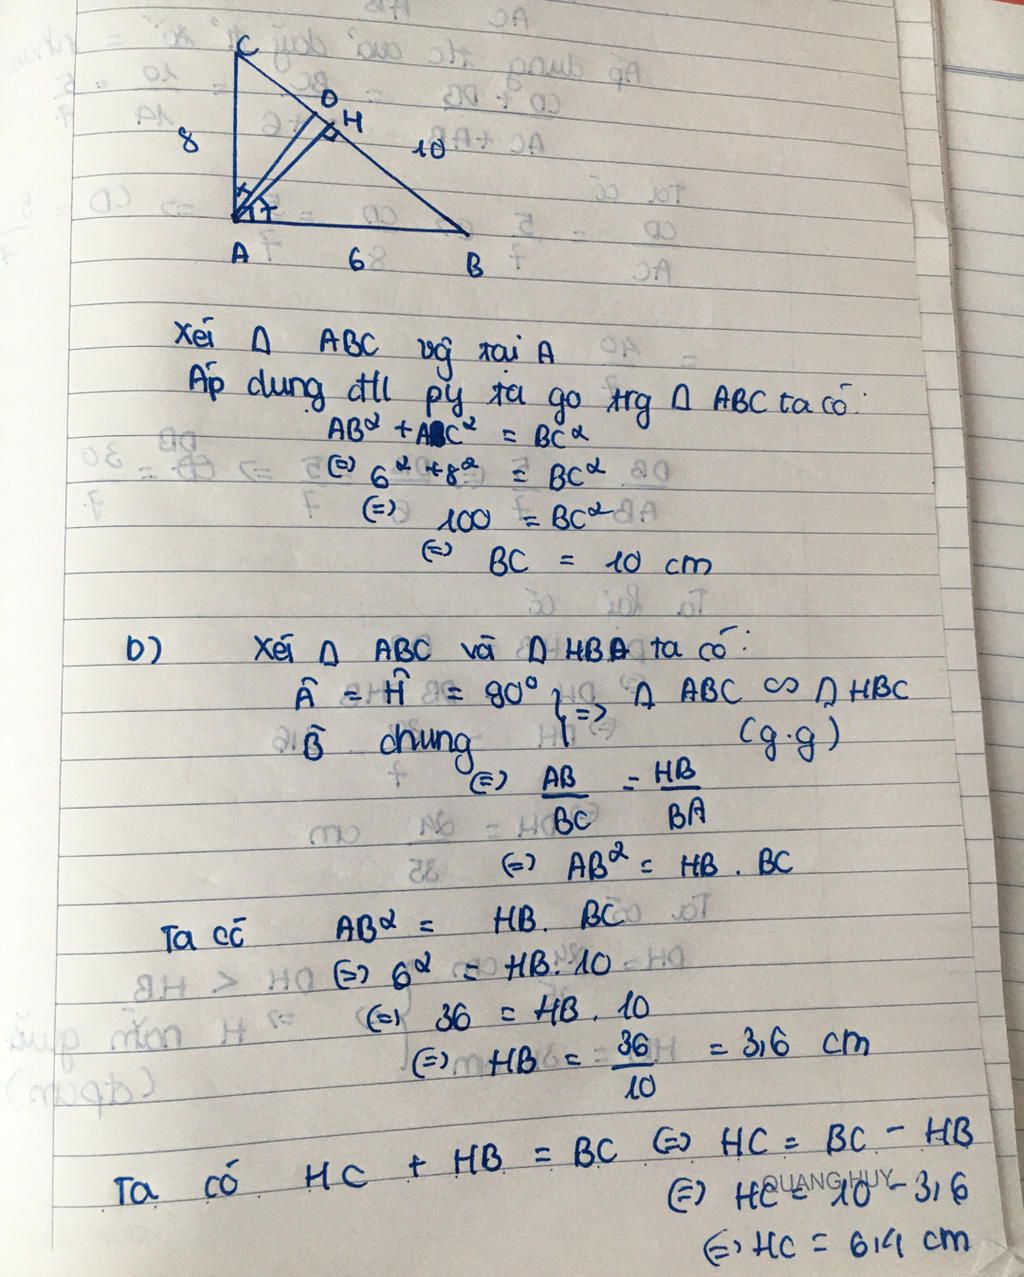 C
D
H
8
10
A
6
B
Xét Δ ABC vg tại A
Áp dụng đtl py ta go trg Δ ABC ta có:
AB² + AC² = BC²
(=) 6² + 8² = BC²
(=) 100 = BC²
(=) BC = 10 cm
b) Xét Δ ABC và Δ HBA ta có:
Â = Ĥ = 90° } => Δ ABC ∽ Δ HBC
B̂ chung (g.g)
(=) AB/BC = HB/BA
(=) AB² = HB . BC
Ta có AB² = HB . BC
(=) 6² = HB . 10
(=) 36 = HB . 10
(=) HB = 36/10 = 3,6 cm
Ta có HC + HB = BC (=) HC = BC - HB
(=) HC = 10 - 3,6
QUANG HUY
(=) HC = 6,4 cm